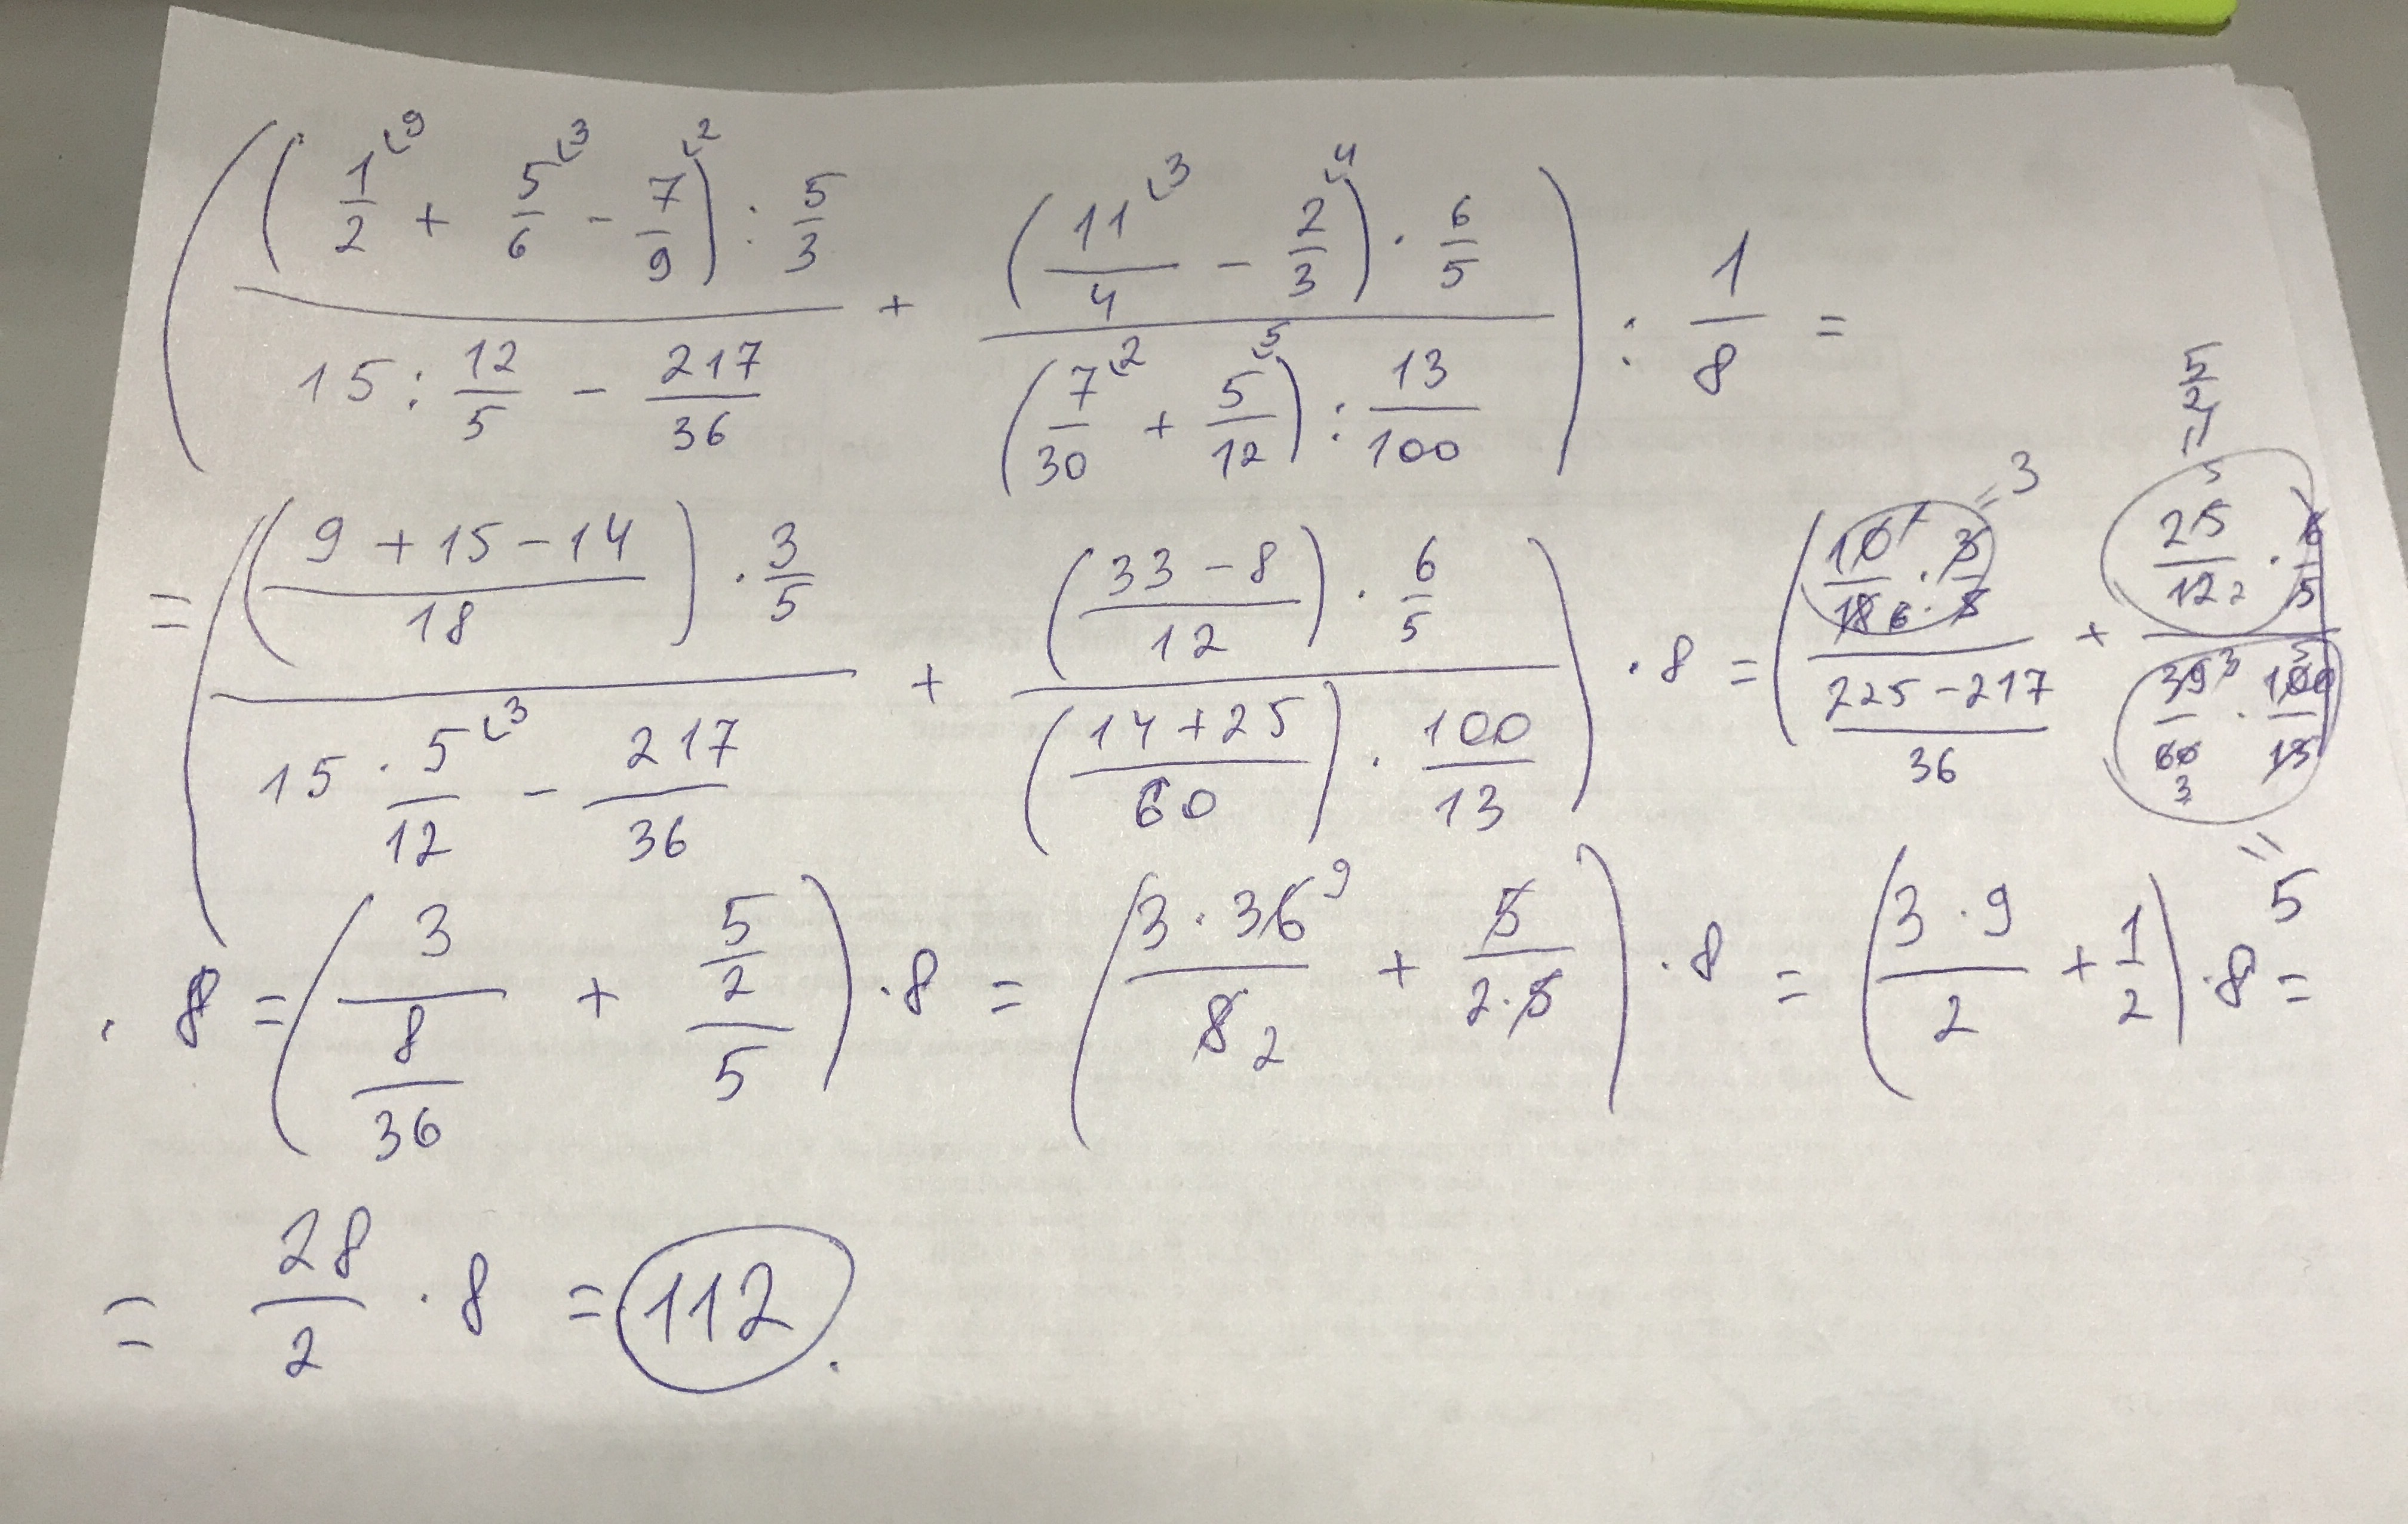 ( (1/2 + 5/6 - 7/9) : 5/3 / 15 : 12/5 - 217/36 + (11/4 - 2/3) · 6/5 / (7/30 + 5/12) : 13/100 ) : 1/8 =
= ( (9 + 15 - 14 / 18) · 3/5 / 15 · 5/12 - 217/36 + (33 - 8 / 12) · 6/5 / (14 + 25 / 60) · 100/13 ) · 8 = ( 10/18 · 3/5 = 3 / 225 - 217 / 36 + 25/12 · 6/5 = 5/2 / 39/60 · 100/13 = 5 )
· 8 = ( 3 / 8/36 + 5/2 / 5 ) · 8 = ( 3 · 36 / 8 + 5 / 2 · 5 ) · 8 = ( 3 · 9 / 2 + 1/2 ) · 8 =
= 28/2 · 8 = 112.